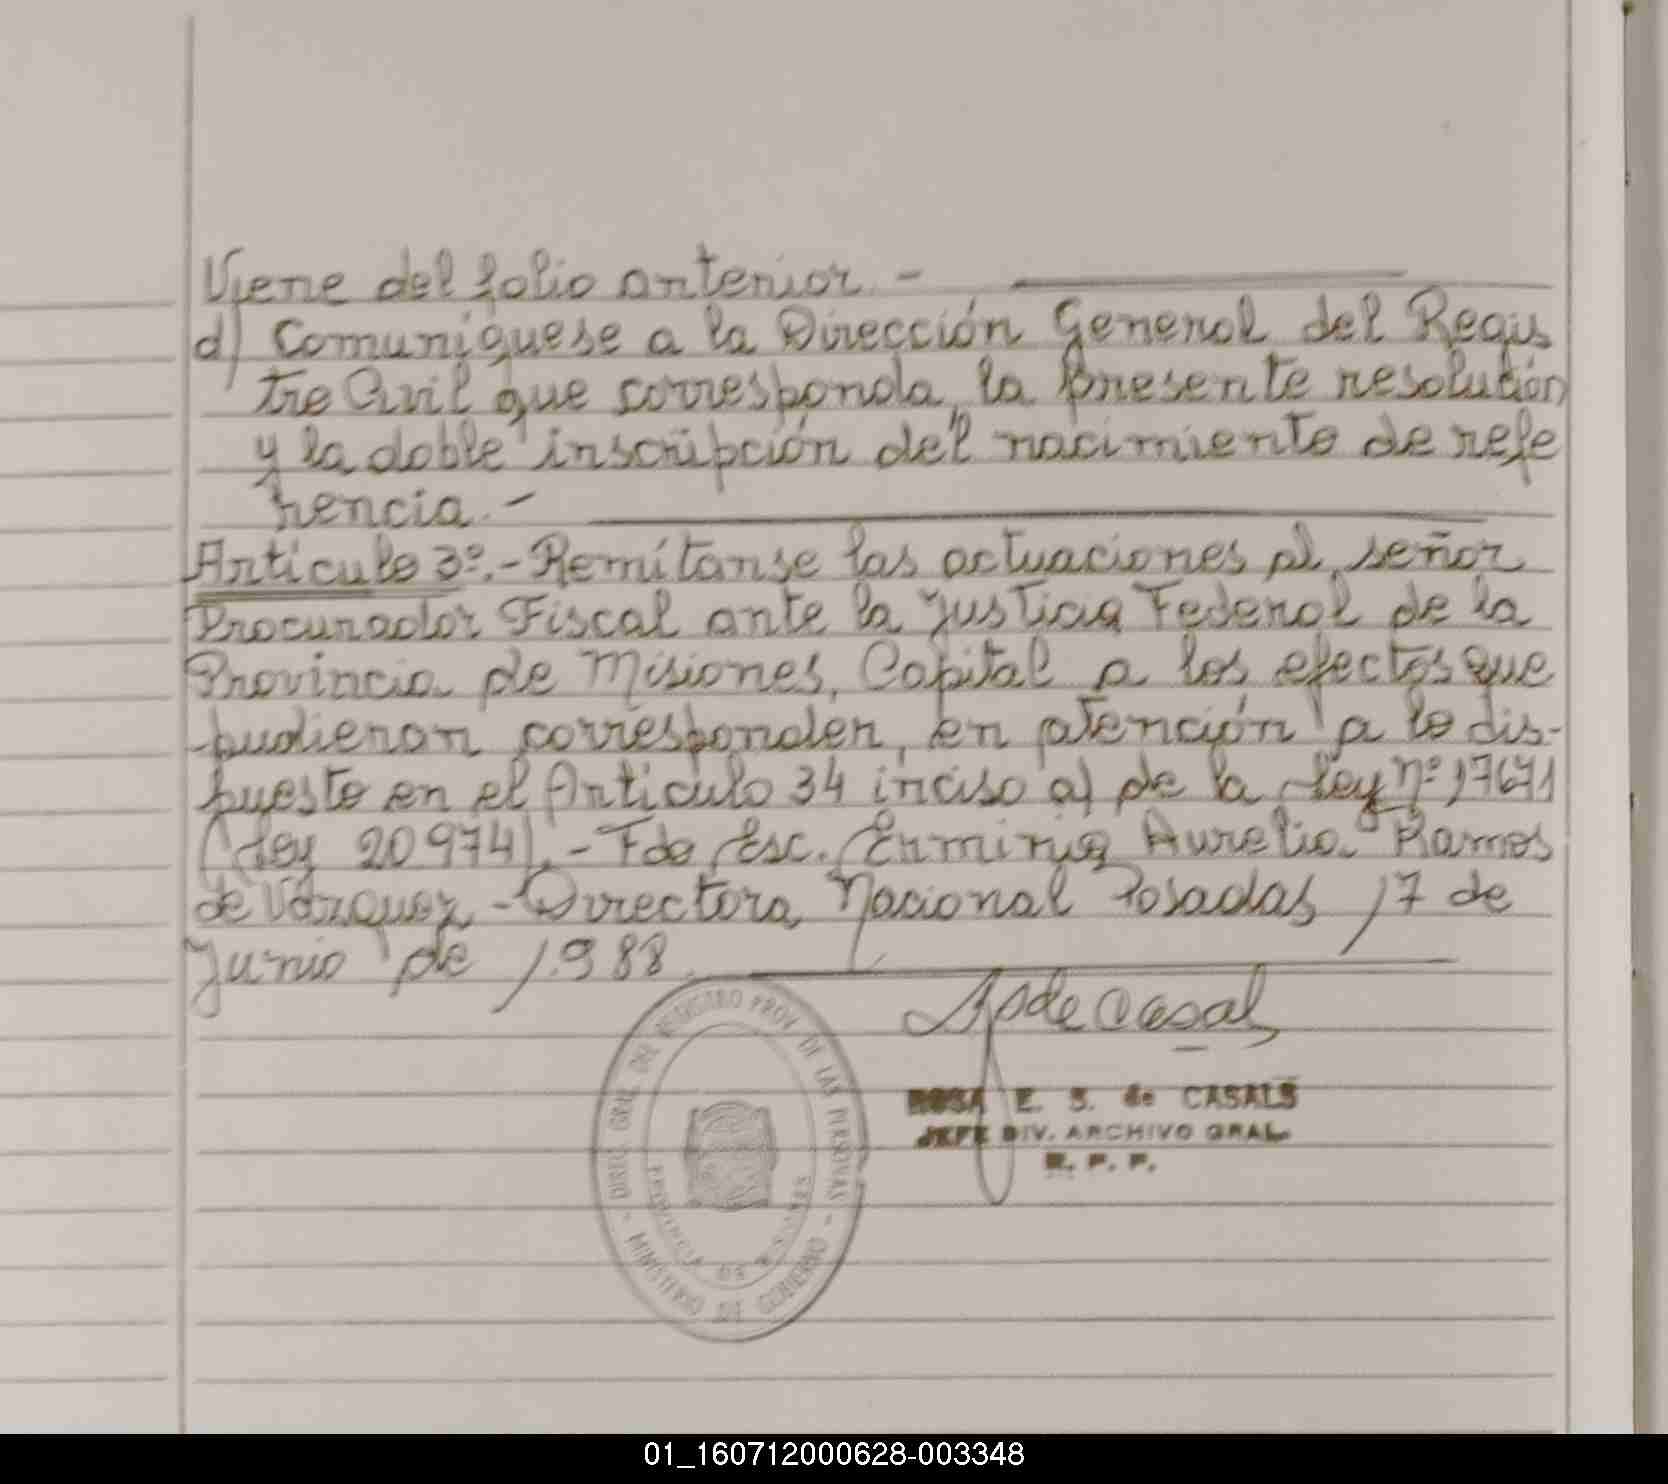 Viene del folio anterior.-
d) Comuníquese a la Dirección General del Regis
tro Civil que corresponda, la presente resolución
y la doble inscripción del nacimiento de refe
rencia.-
Artículo 3º.- Remítanse las actuaciones al señor
Procurador Fiscal ante la Justicia Federal de la
Provincia de Misiones, Capital a los efectos que
pudieran corresponder, en atención a lo dis-
puesto en el Artículo 34 inciso a) de la Ley nº 17671
(Ley 20974).- Fdo Esc. Erminia Aurelia Ramos
de Vázquez - Directora Nacional Posadas 17 de
Junio de 1.988
S de Casals
ROSA E. S. de CASALS
JEFE DIV. ARCHIVO GRAL.
R. P. P.
DIREC. GRAL. DE REGISTRO PROV. DE LAS PERSONAS
PROVINCIA DE MISIONES
- MINISTERIO DE GOBIERNO -
01_160712000628-003348